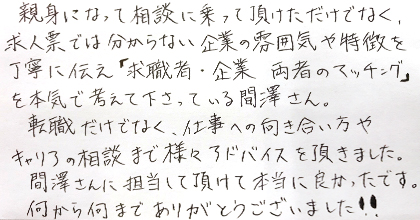 親身になって相談に乗って頂けただけでなく、
求人票では分からない企業の雰囲気や特徴を
丁寧に伝え『求職者・企業 両者のマッチング』
を本気で考えて下さっている間澤さん。
転職だけでなく、仕事への向き合い方や
キャリアの相談まで様々アドバイスを頂きました。
間澤さんに担当して頂けて本当に良かったです。
何から何までありがとうございました!!